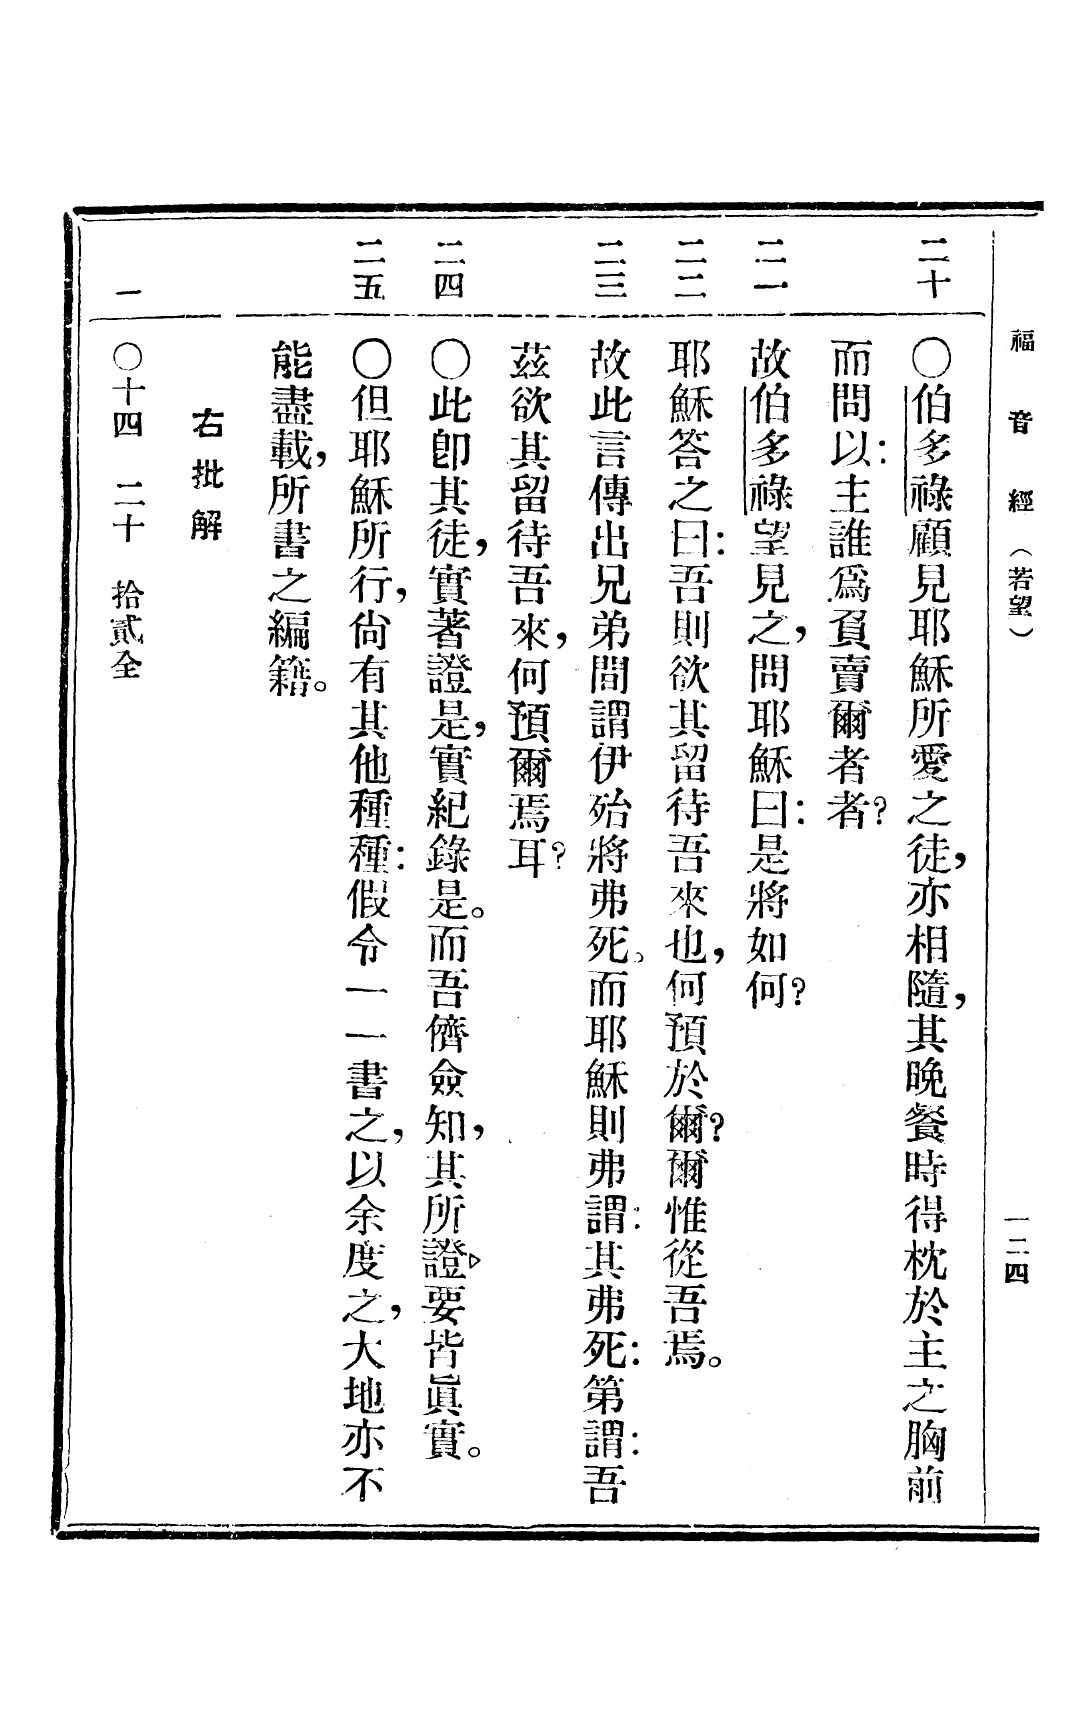 福音經(若望)
一二四
二十
〇伯多祿顧見耶穌所愛之徒,亦相隨,其晚餐時得枕於主之胸前
而問以:主誰爲負賣爾者者?
二一
故伯多祿望見之,問耶穌曰:是將如何?
二二
耶穌答之曰:吾則欲其留待吾來也,何預於爾?爾惟從吾焉。
二三
故此言傳出兄弟間謂伊殆將弗死。而耶穌則弗謂:其弗死:第謂:吾
茲欲其留待吾來,何預爾焉耳?
二四
〇此卽其徒,實著證是,實紀錄是。而吾儕僉知,其所證,要皆眞實。
二五
〇但耶穌所行,尙有其他種種:假令一一書之,以余度之,大地亦不
能盡載,所書之編籍。
右批解
一
〇十四 二十 拾貳全